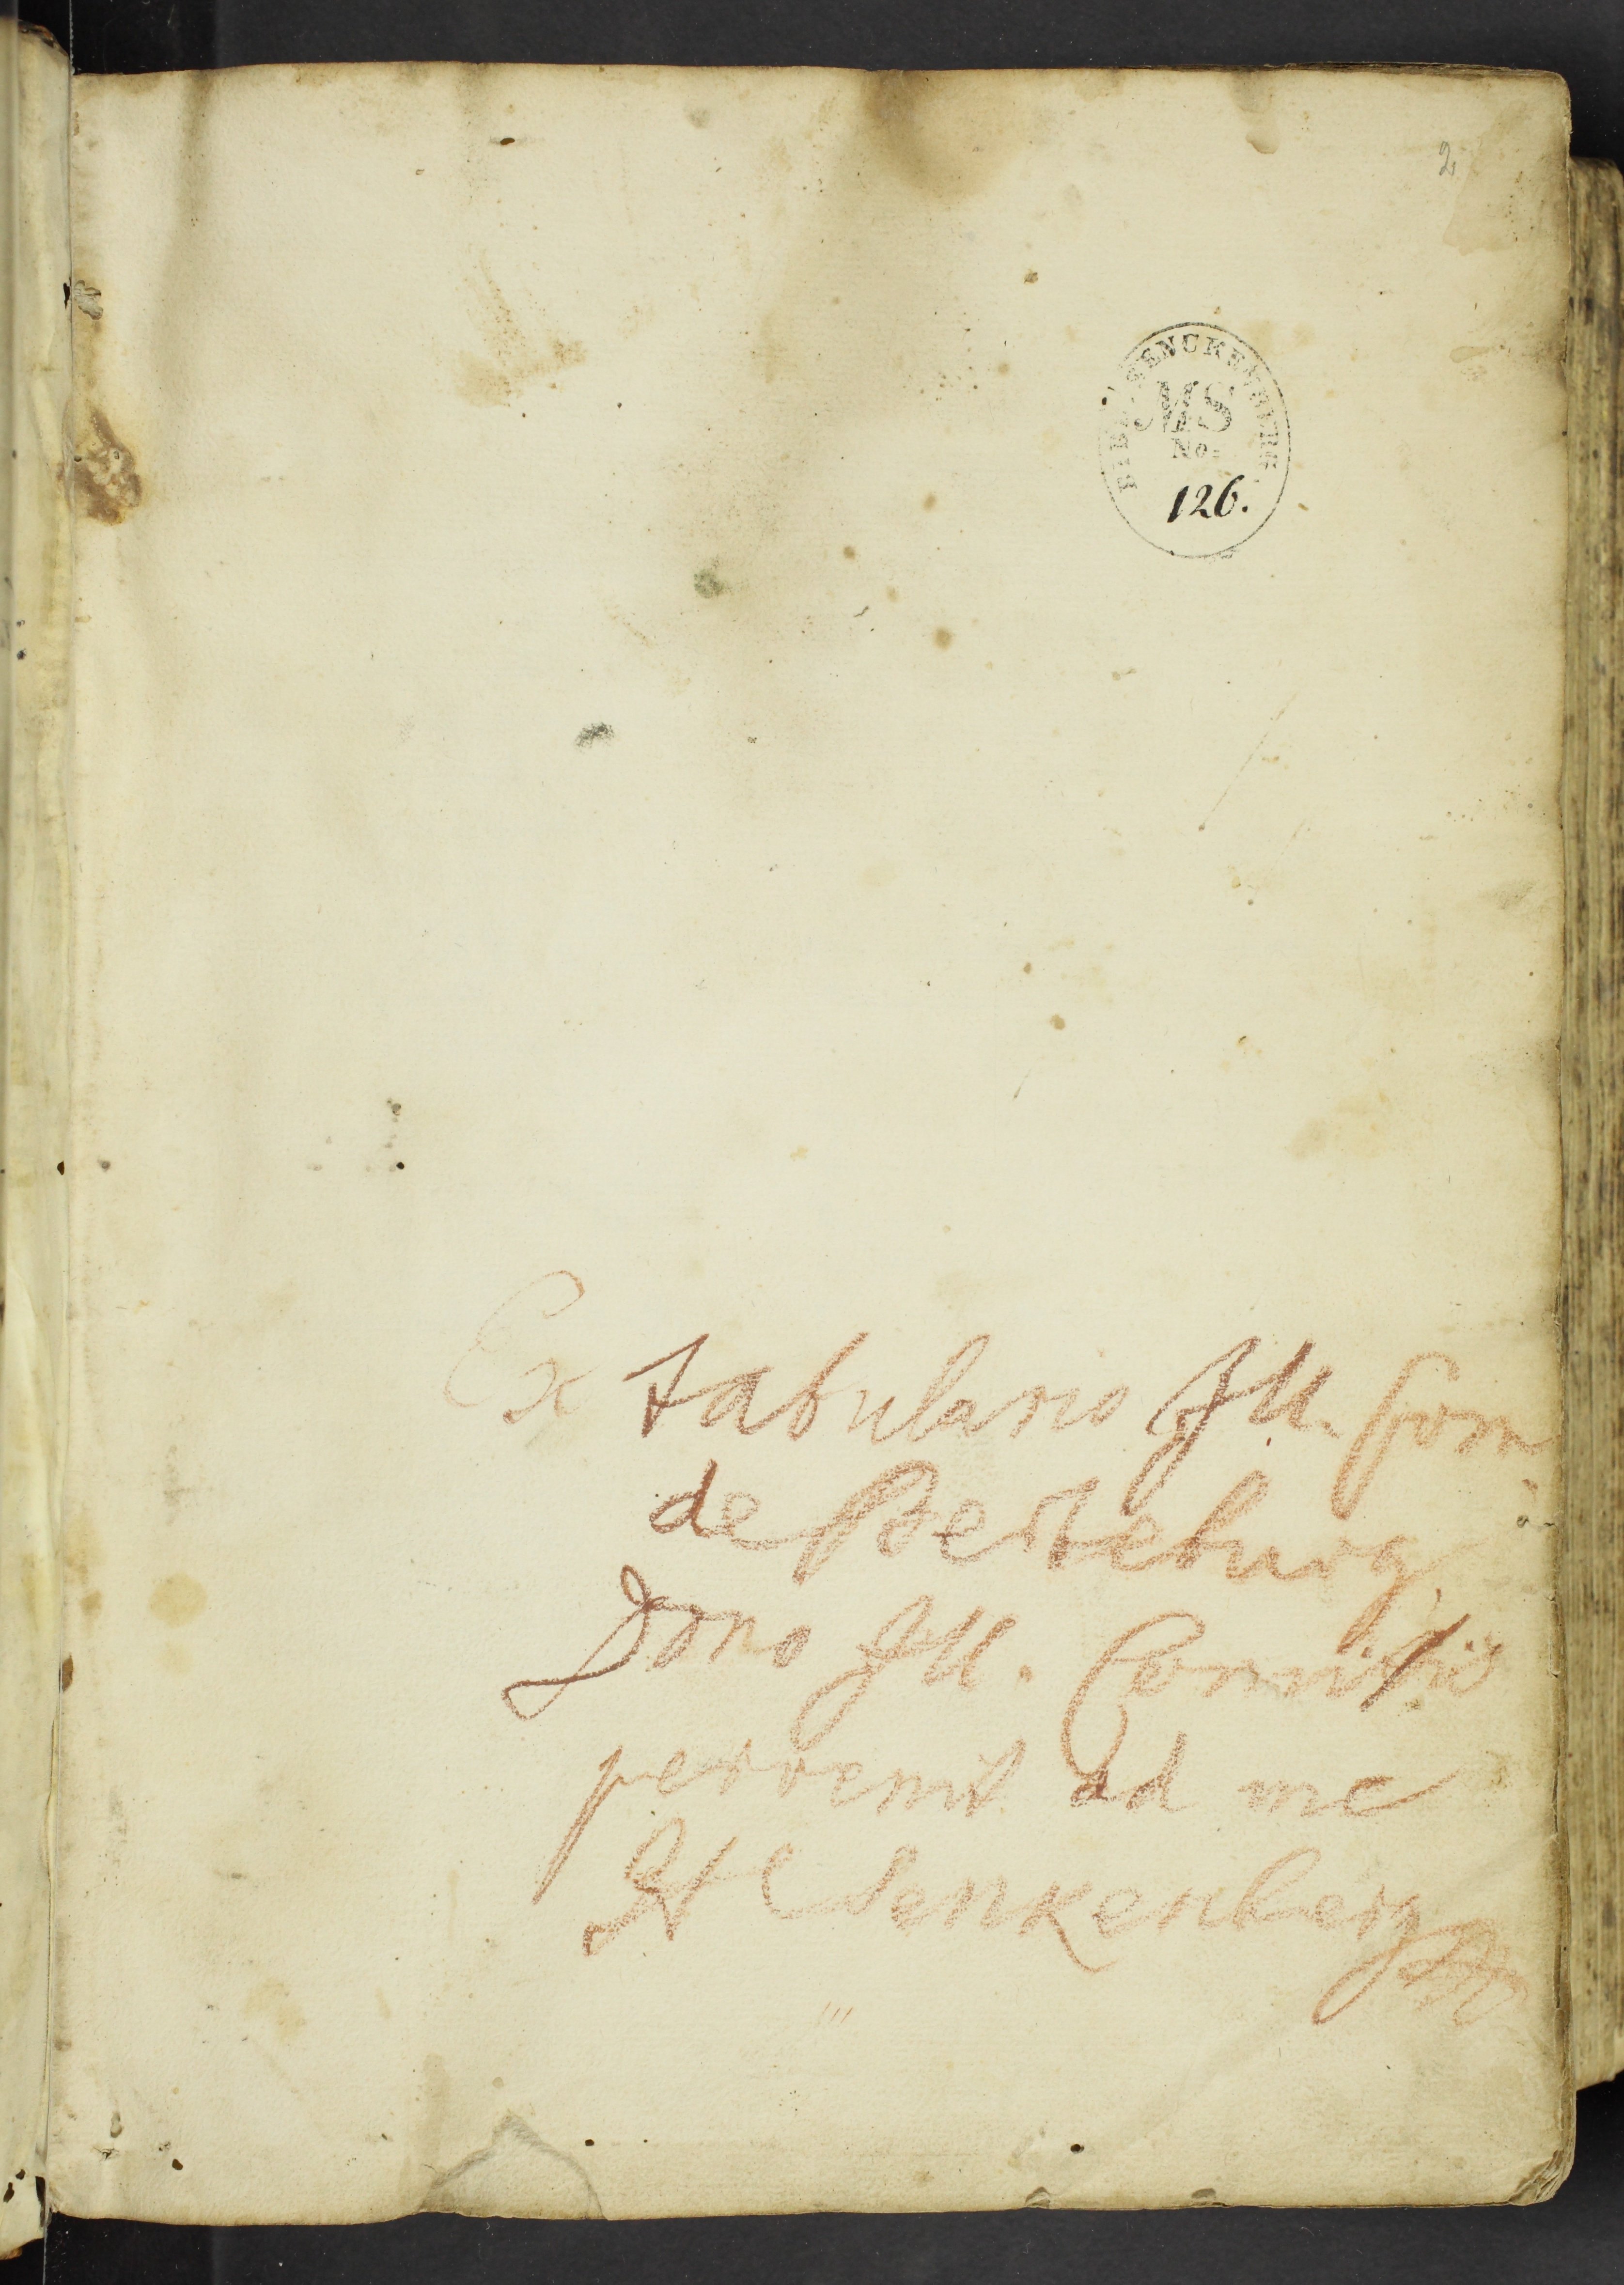 2
BIBL. SENCKENBERG.
MS
No.
126.
Ex tabulario Ill. Com
de Berleburg
Dono Ill. Comitis
pervenit ad me
H C Senkenberg